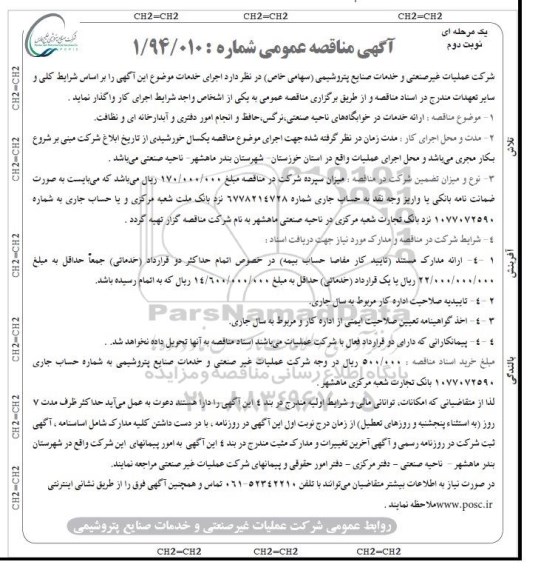 CH2=CH2 CH2=CH2 CH2=CH2
یک مرحله ای
نوبت دوم
آگهی مناقصه عمومی شماره : ۱/۹۴/۰۱۰
شرکت عملیات غیرصنعتی و خدمات صنایع پتروشیمی (سهامی خاص) در نظر دارد اجرای خدمات موضوع این آگهی را بر اساس شرایط کلی و
سایر تعهدات مندرج در اسناد مناقصه و از طریق برگزاری مناقصه عمومی به یکی از اشخاص واجد شرایط اجرای کار واگذار نماید .
۱- موضوع مناقصه : ارائه خدمات در خوابگاههای ناحیه صنعتی،نرگس،حافظ و انجام امور دفتری و آبدارخانه ای و نظافت.
۲- مدت و محل اجرای کار : مدت زمان در نظر گرفته شده جهت اجرای موضوع مناقصه یکسال خورشیدی از تاریخ ابلاغ شرکت مبنی بر شروع
بکار مجری می‌باشد و محل اجرای عملیات واقع در استان خوزستان- شهرستان بندر ماهشهر- ناحیه صنعتی می‌باشد .
۳- نوع و میزان تضمین شرکت در مناقصه : میزان سپرده شرکت در مناقصه مبلغ ۱۷۰/۰۰۰/۰۰۰ ریال می‌باشد که می‌بایست به صورت
ضمانت نامه بانکی یا واریز وجه نقد به حساب جاری شماره ۶۷۷۸۲۱۴۷۲۸ نزد بانک ملت شعبه مرکزی و یا حساب جاری به شماره
۱۰۷۷۰۷۲۵۹۰ نزد بانک تجارت شعبه مرکزی در ناحیه صنعتی ماهشهر به نام شرکت مناقصه گزار تهیه گردد .
۴- شرایط شرکت در مناقصه و مدارک مورد نیاز جهت دریافت اسناد :
۱ -۴- ارائه مدارک مستند (تایید کار مفاصا حساب بیمه) در خصوص اتمام حداکثر دو قرارداد (خدماتی) جمعاً حداقل به مبلغ
۲۲/۰۰۰/۰۰۰/۰۰۰ ریال یا یک قرارداد (خدماتی) حداقل به مبلغ ۱۴/۶۰۰/۰۰۰/۰۰۰ ریال که به اتمام رسیده باشد.
۲ -۴- تاییدیه صلاحیت اداره کار مربوط به سال جاری.
۳ -۴- اخذ گواهینامه تعیین صلاحیت ایمنی از اداره کار و مربوط به سال جاری.
۴ -۴- پیمانکارانی که دارای دو قرارداد فعال با شرکت عملیات می‌باشند اسناد مناقصه به آنها تحویل داده نخواهد شد. .
مبلغ خرید اسناد مناقصه : ۵۰۰/۰۰۰ ریال در وجه شرکت عملیات غیر صنعتی و خدمات صنایع پتروشیمی به شماره حساب جاری
۱۰۷۷۰۷۲۵۹۰ بانک تجارت شعبه مرکزی ماهشهر .
لذا از متقاضیانی که امکانات، توانائی مالی و شرایط اولیه مندرج در بند ۴ این آگهی را دارا هستند دعوت به عمل می‌آید حداکثر ظرف مدت ۷
روز (به استثناء پنجشنبه و روزهای تعطیل) از زمان درج نوبت اول این آگهی در روزنامه ، با در دست داشتن کلیه مدارک شامل اساسنامه ، آگهی
ثبت شرکت در روزنامه رسمی و آگهی آخرین تغییرات و مدارک مثبت مندرج در بند ۴ این آگهی به امور پیمانهای این شرکت واقع در شهرستان
بندر ماهشهر - ناحیه صنعتی - دفتر مرکزی - دفتر امور حقوقی و پیمانهای شرکت عملیات غیر صنعتی مراجعه نمایند.
در صورت نیاز به اطلاعات بیشتر متقاضیان می‌توانند با تلفن ۵۲۳۴۲۲۱۰-۰۶۱ تماس و همچنین آگهی فوق را از طریق نشانی اینترنتی
www.posc.ir ملاحظه نمایند .
روابط عمومی شرکت عملیات غیرصنعتی و خدمات صنایع پتروشیمی
CH2=CH2 CH2=CH2 CH2=CH2
تلاش
آفرینش
بالندگی
CH2=CH2 CH2=CH2 CH2=CH2 CH2=CH2 CH2=CH2 CH2=CH2
ParsNamadData
پایگاه اطلاع رسانی مناقصه و مزایده